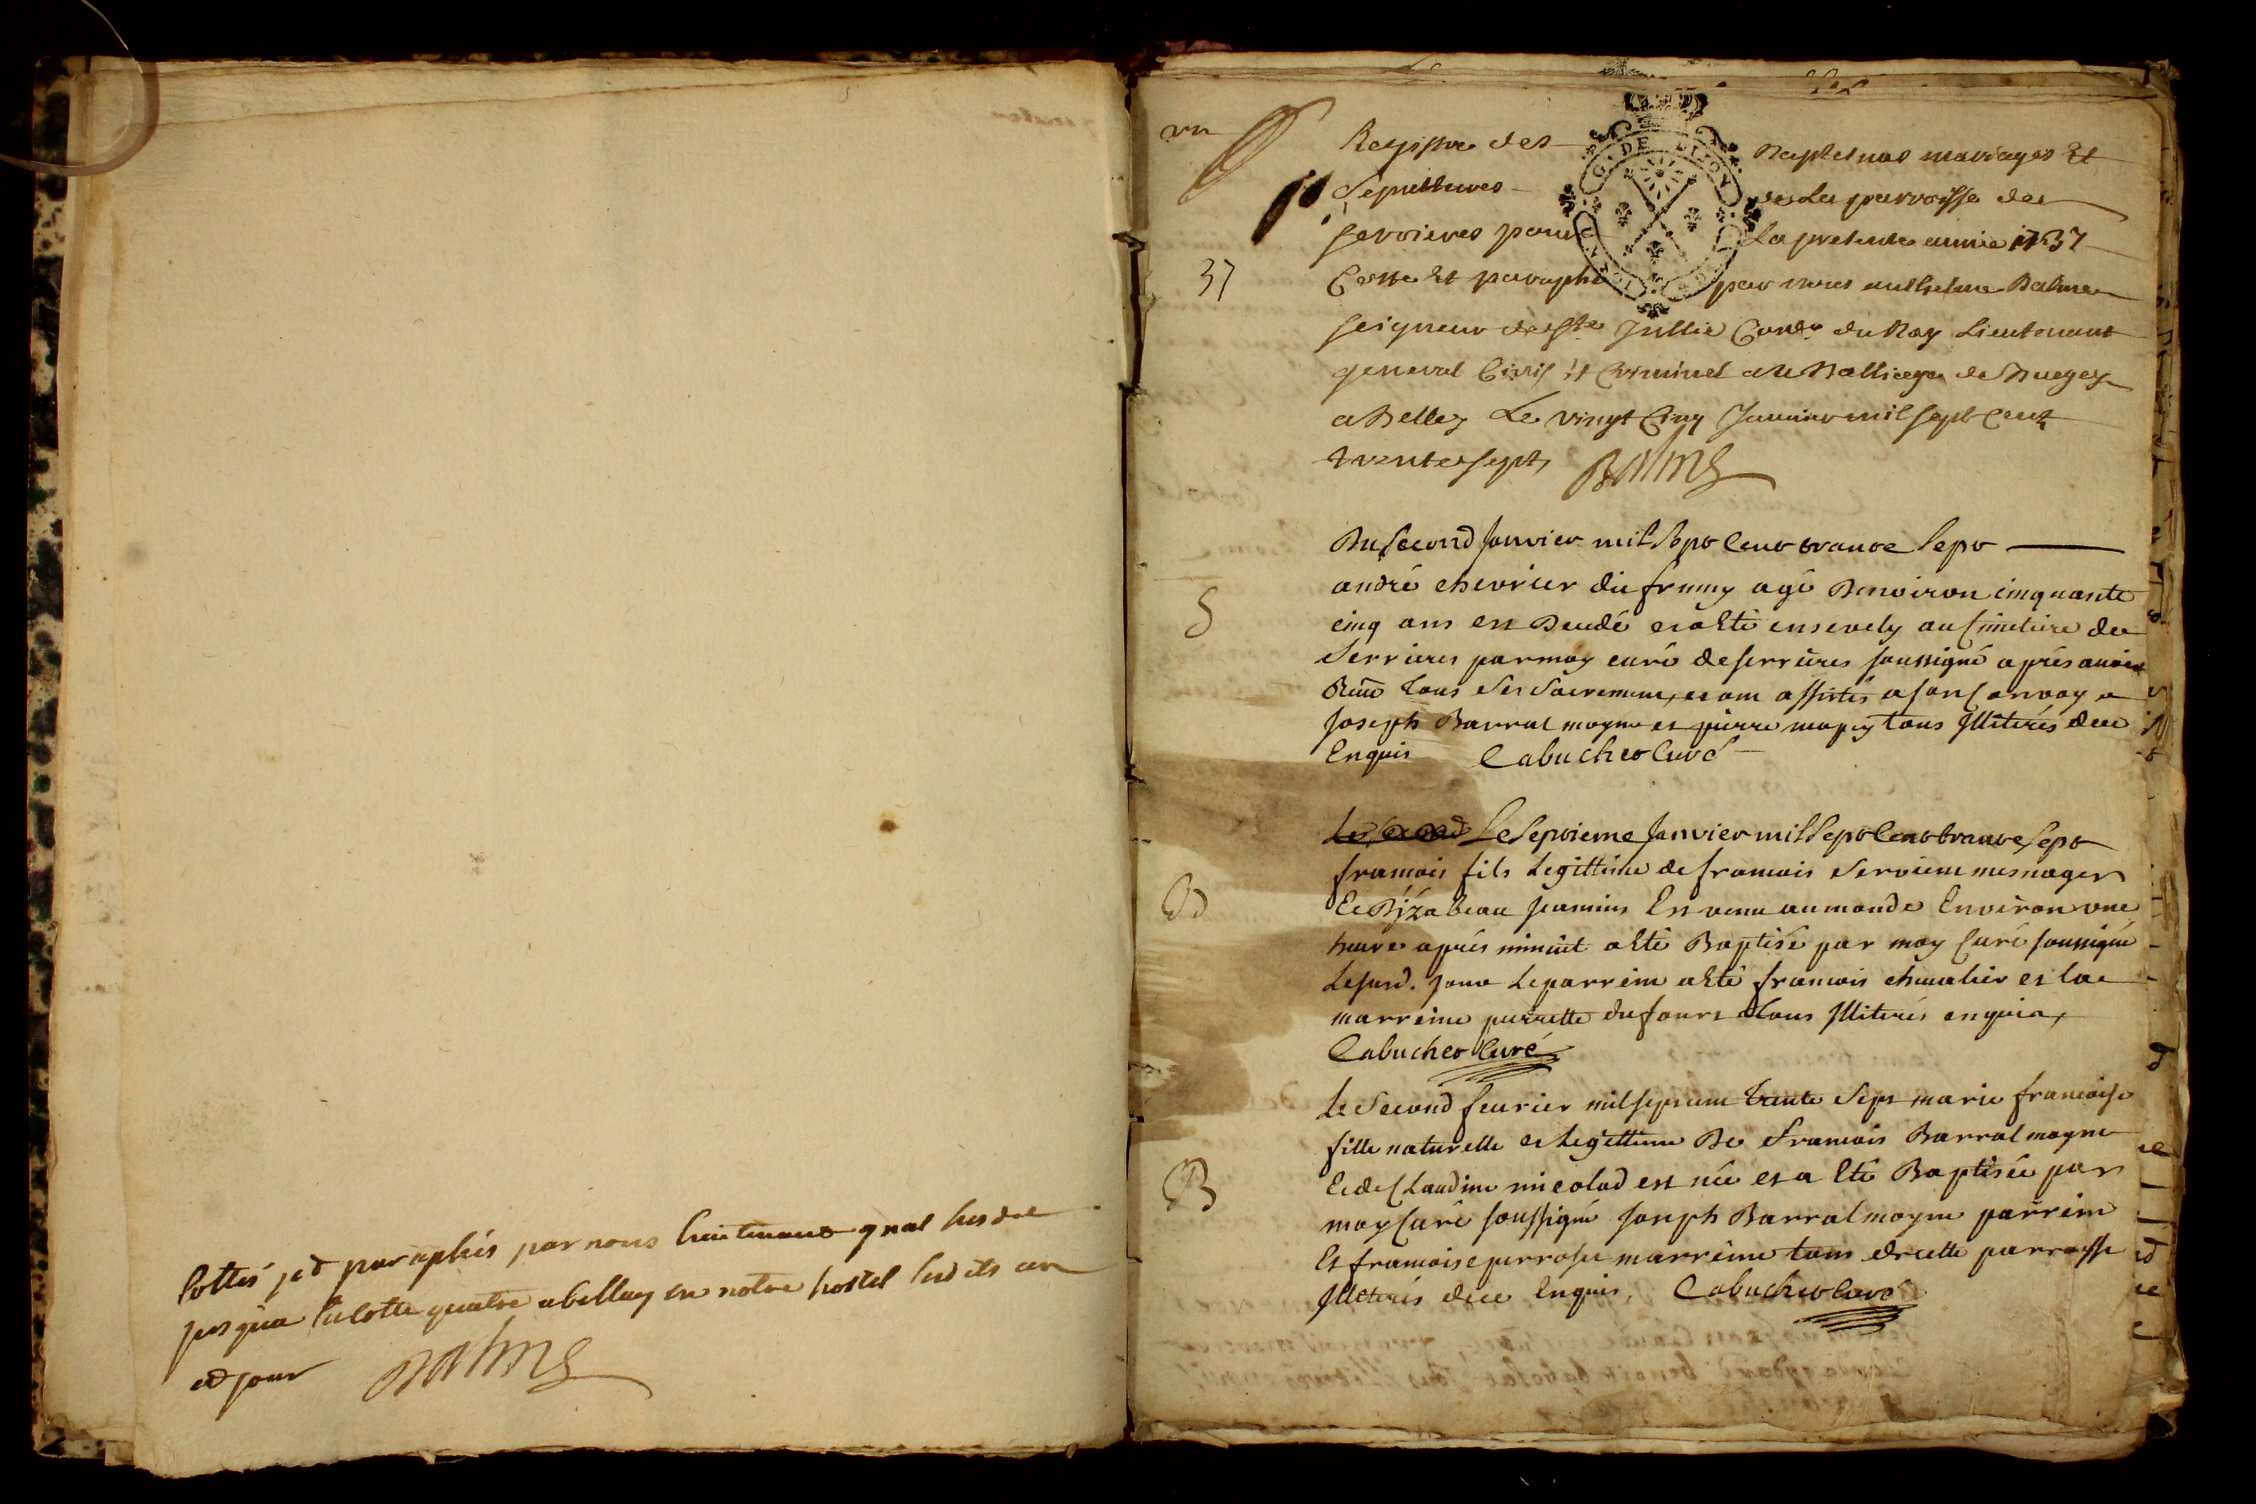 Cottés et paraphés par nous Lieutenant gnal susdit
jusqua la cotte quatre a belley en notre hostel lesdits an
et jour Balme
un
Registre des Baptesmes mariages Et
Sepultures de La parroisse de
serrieres pour La presente année 1737
37
Cotté Et paraphé par nous anthelme Balme
seigneur de Ste Jullie Consr du Roy Lieutenant
general Civil Et Criminel au Balliage de Bugey
a Belley Le vingt Cinq Janvier mil sept Cent
trente sept Balme
Du second Janvier mil sept cent trante sept
andré chevrier dit agé Denviron cinquante
S
cinq ans est Decedé et a esté ensevely au Cimetiere de
Serrieres par moy curé de serrieres soussigné aprés avoir
Receu tous ses Sacremens, et ont assistés a son Convoy
Joseph Barral moyne et pierre tous Illiterés de ce
Enquis Cabuchet Curé
Le second Le Septieme Janvier mil sept cent trante sept
francois fils Legittime de francois mesnager
B
Et Dyzabeau Est venu au monde Environ une
heure aprés minuit a esté Baptisé par moy Curé soussigné
Lesusd. jour Le parrein a esté francois chevalier et la
marreine pierrette dufour tous Illiterés enquis,
Cabuchet Curé
Le Second fevrier mil sept cent trante Sept marie francoise
fille naturelle et legittime De francois Barral moyne
B
Et de Claudine nicolad est née et a Eté Baptisée par
moy Curé soussigné Joseph Barral moyne parrein
Et francoise marreine tous de cette parroisse
Illiterés de ce Enquis. Cabuchet Curé